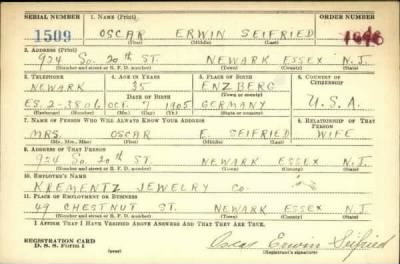 SERIAL NUMBER 1. NAME (Print) ORDER NUMBER
1509 OSCAR ERWIN SEIFRIED
(First) (Middle) (Last)
2. ADDRESS (Print)
924 So. 20th ST. NEWARK ESSEX N.J.
(Number and street or R. F. D. number) (Town) (County) (State)
3. TELEPHONE 4. AGE IN YEARS 5. PLACE OF BIRTH 6. COUNTRY OF CITIZENSHIP
NEWARK 35 ENZBERG
DATE OF BIRTH (Town or county)
ES. 2-3806 OCT. 7 1905 GERMANY U.S.A.
(Exchange) (Number) (Mo.) (Day) (Yr.) (State or country)
7. NAME OF PERSON WHO WILL ALWAYS KNOW YOUR ADDRESS 8. RELATIONSHIP OF THAT PERSON
MRS. OSCAR E. SEIFRIED WIFE
(Mr., Mrs., Miss) (First) (Middle) (Last)
9. ADDRESS OF THAT PERSON
924 So. 20th ST. NEWARK ESSEX N.J.
(Number and street or R. F. D. number) (Town) (County) (State)
10. EMPLOYER'S NAME
KREMENTZ JEWELRY Co.
11. PLACE OF EMPLOYMENT OR BUSINESS
49 CHESTNUT ST. NEWARK ESSEX N.J.
(Number and street or R. F. D. number) (Town) (County) (State)
I AFFIRM THAT I HAVE VERIFIED ABOVE ANSWERS AND THAT THEY ARE TRUE.
REGISTRATION CARD
D. S. S. Form 1 (over) Oscar Erwin Seifried
(Registrant's signature)